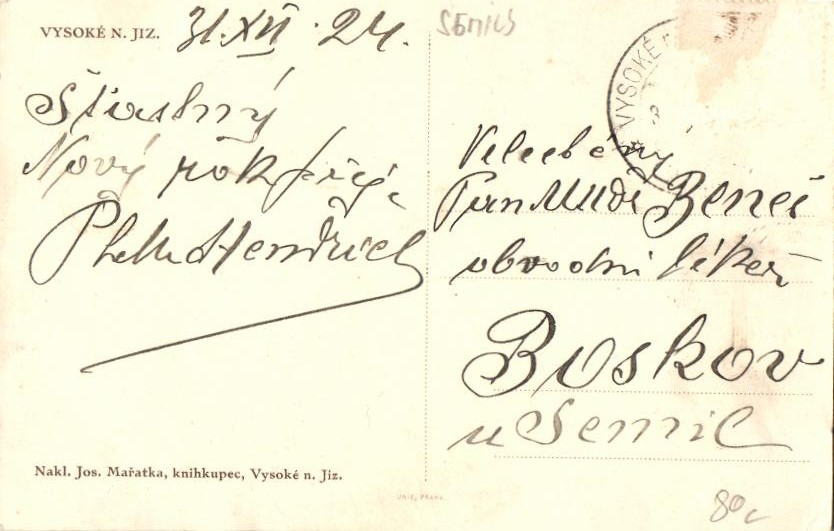 VYSOKÉ N. JIZ.
31.XII. 24.
SEMILY
VYSOKÉ
Šťastný
Nový rok přeje
Hendrich
Velectěný
Pan MUDr Beneš
obvodní lékař
Boskov
u Semil
Nakl. Jos. Mařatka, knihkupec, Vysoké n. Jiz.
UNIE, PRAHA.
80